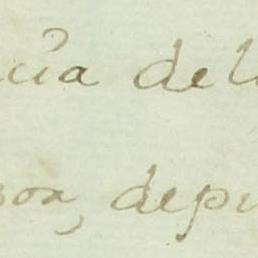 cia del
son, depu